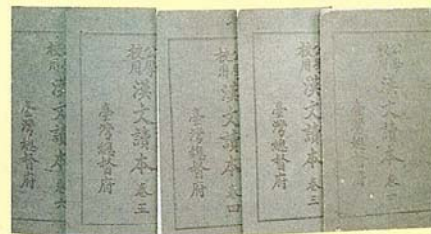 公學校用漢文讀本卷
臺灣總督府
公學校用漢文讀本卷三
臺灣總督府
公學校用漢文讀本卷四
臺灣總督府
公學校用漢文讀本卷五
臺灣總督府
公學校用漢文讀本卷六
臺灣總督府